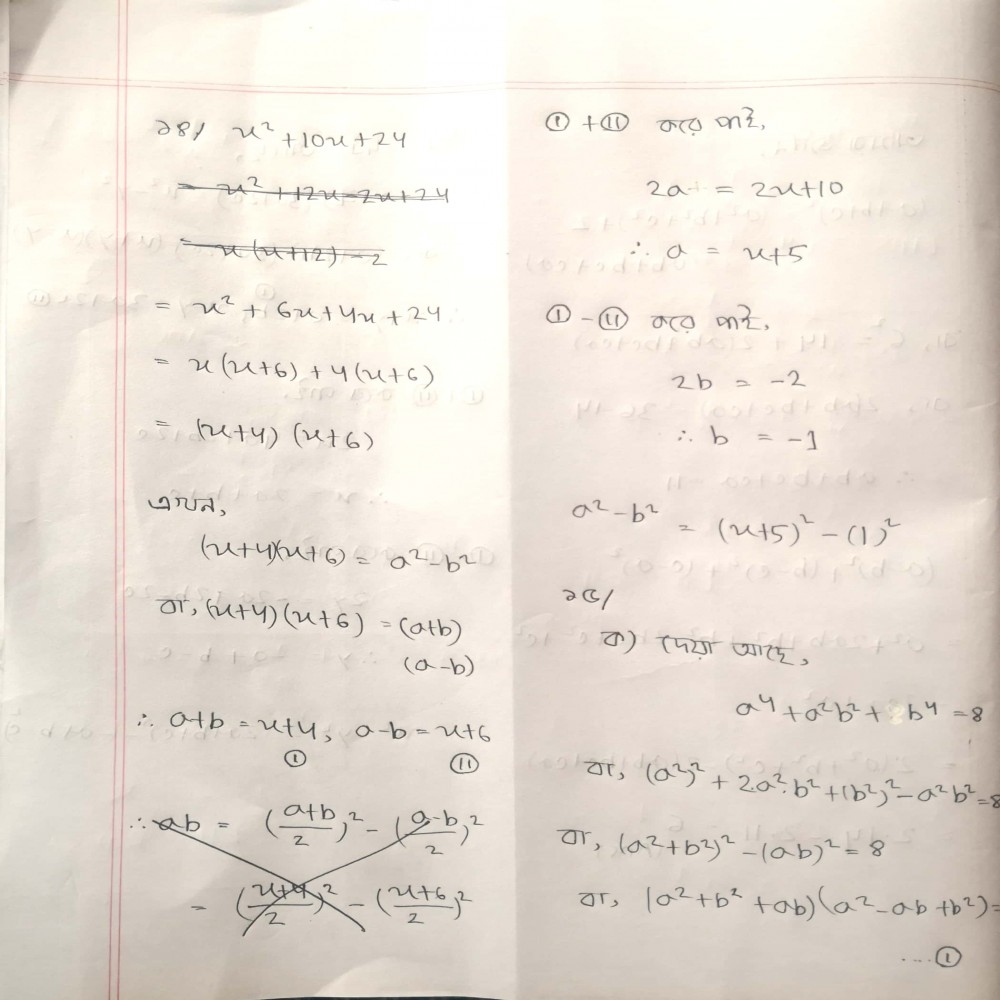 ২৪/ x² + 10x + 24
= x² + 12x - 2x + 24
= x (x+12) - 2
= x² + 6x + 4x + 24
= x (x+6) + 4 (x+6)
= (x+4) (x+6)
এখন,
(x+4)(x+6) = a² - b²
বা, (x+4) (x+6) = (a+b)
(a-b)
∴ a+b = x+4, a-b = x+6
① ⑪
∴ ab = (a+b/2)² - (a-b/2)²
= (x+4/2)² - (x+6/2)²
① + ⑪ করে পাই,
2a = 2x+10
∴ a = x+5
① - ⑪ করে পাই,
2b = -2
∴ b = -1
a² - b² = (x+5)² - (1)²
২৫/
ক) দেয়া আছে,
a⁴ + a²b² + b⁴ = 8
বা, (a²)² + 2.a².b² + (b²)² - a²b² = 8
বা, (a²+b²)² - (ab)² = 8
বা, (a² + b² + ab) (a² - ab + b²) =
....①